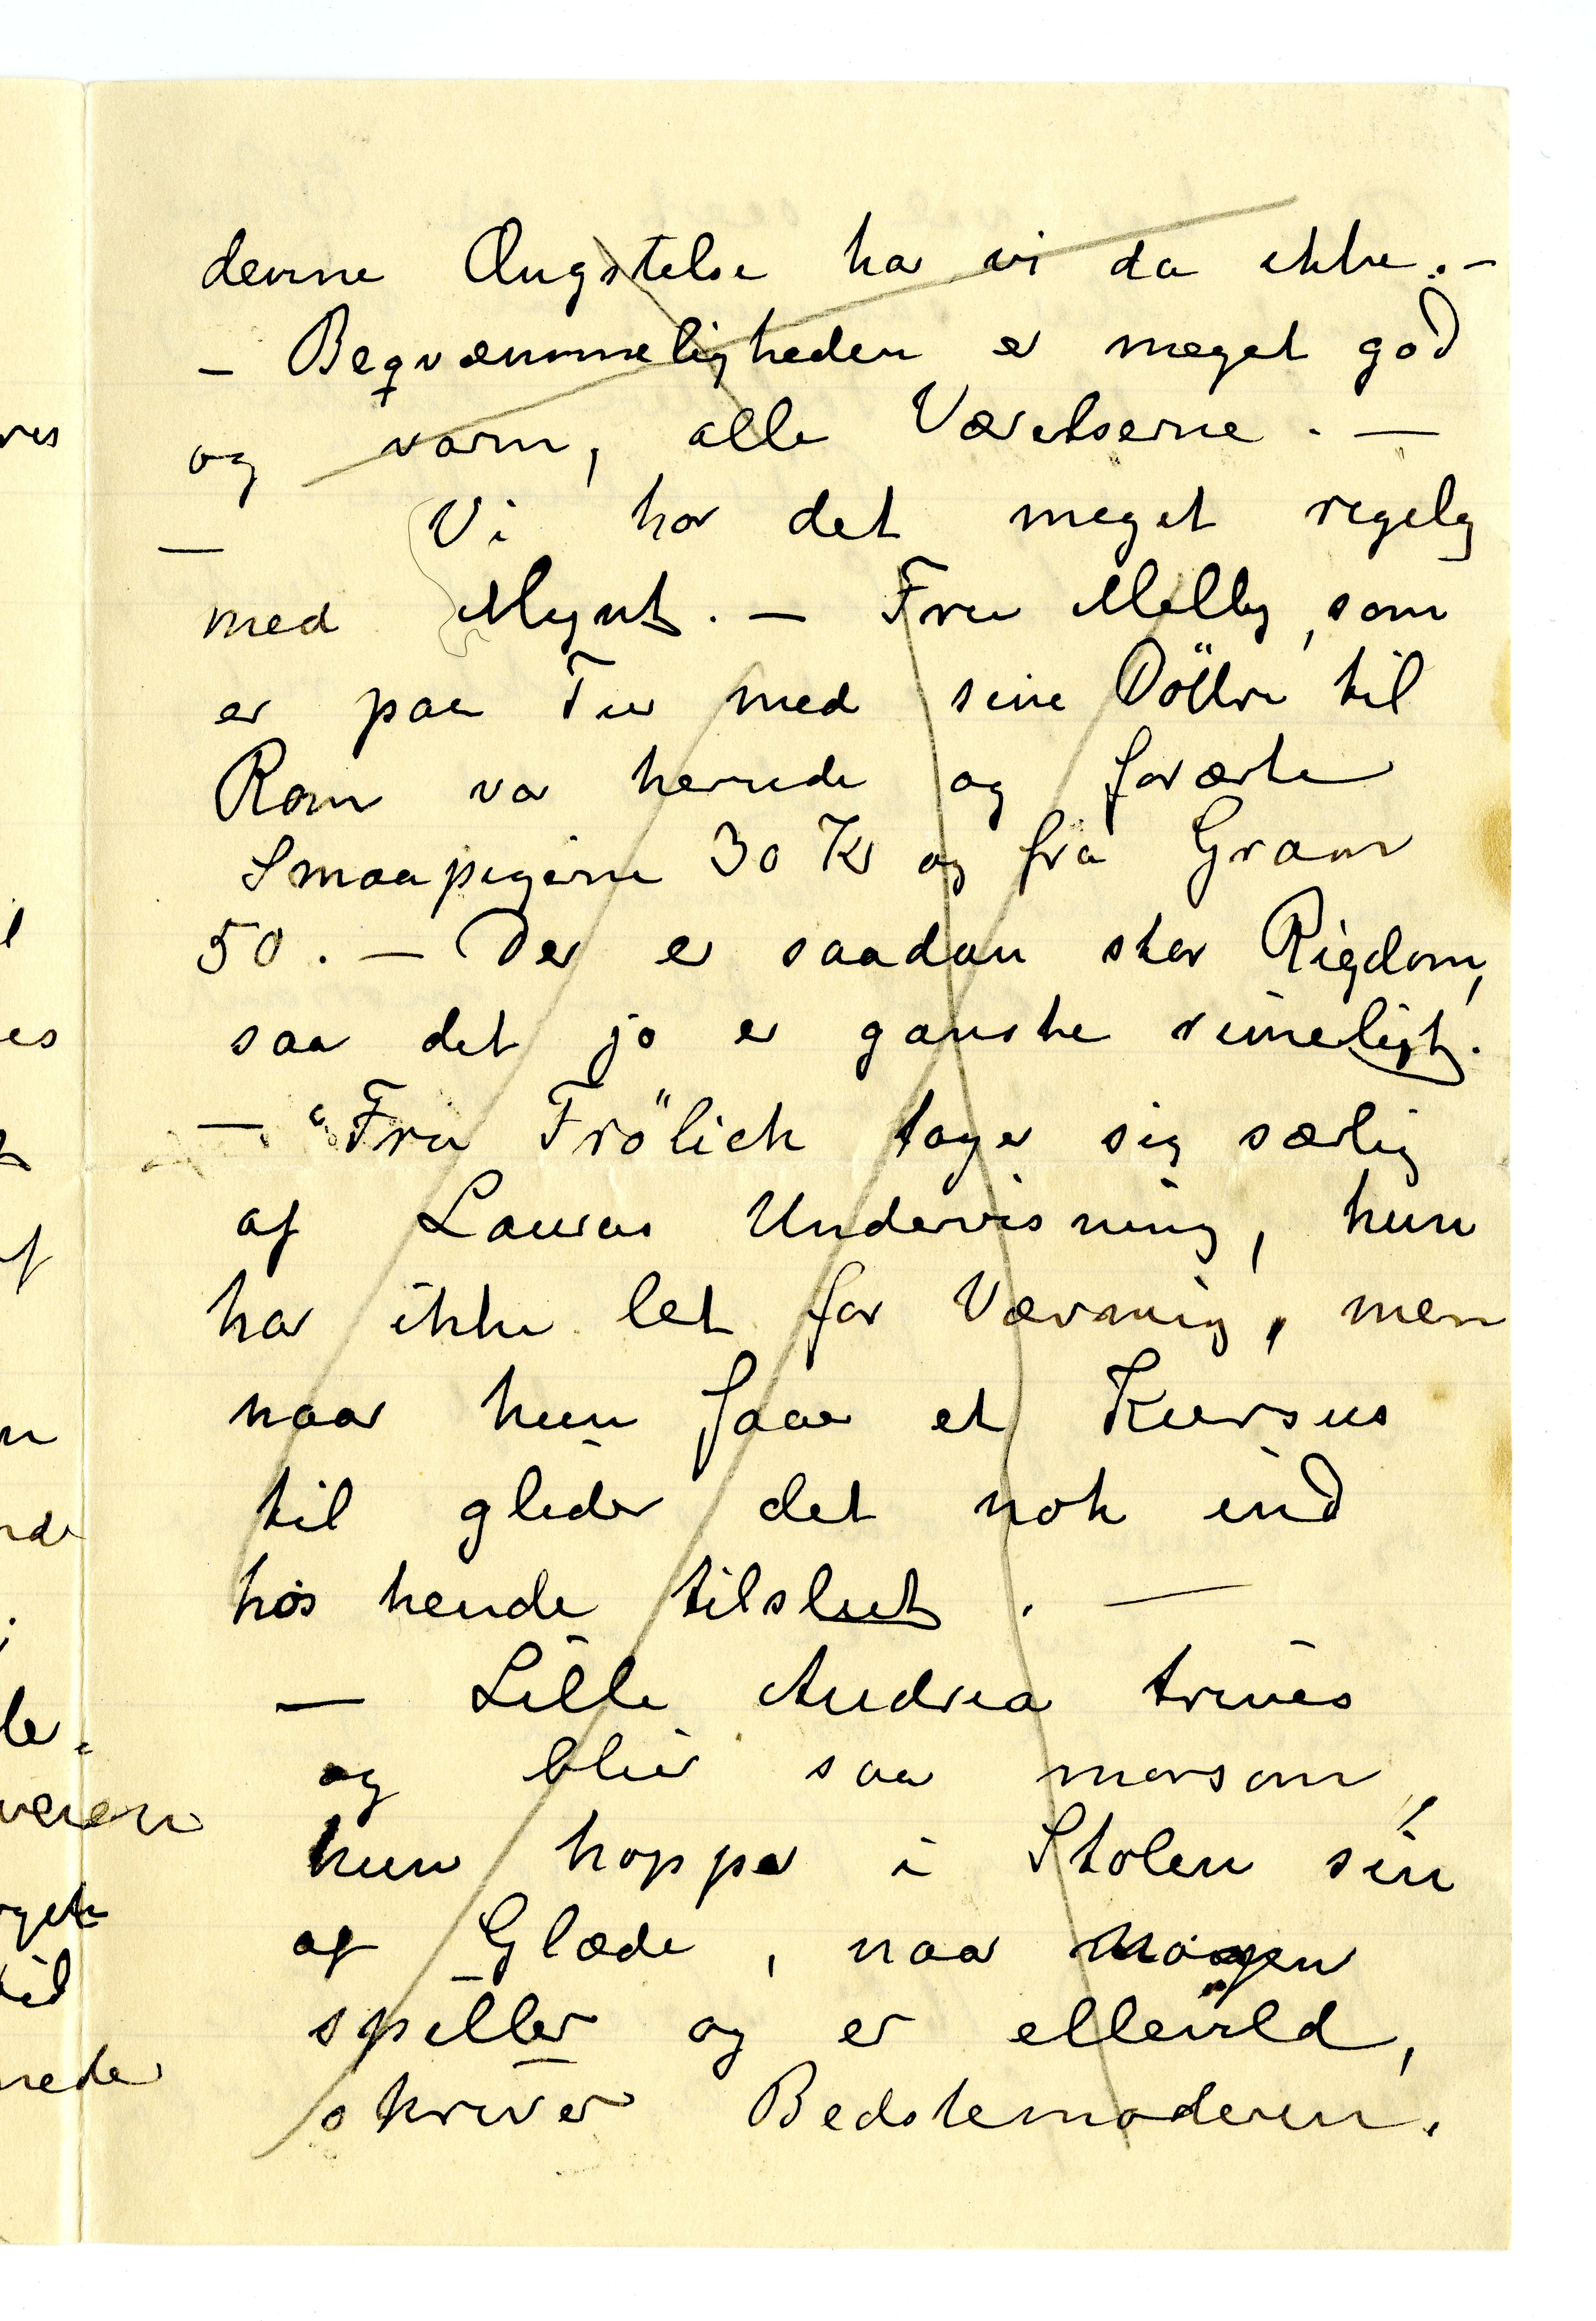 denne Ængstelse har vi da ikke. –
– Beqvæmmeligheden er meget god
og varm, alle Værelserne. –
– Vi har det meget rigelig
med Mynt. – Fru Melby, som
er paa Tur med sine Döttre til
Rom var herude og forærte
Smaapigerne 30 Kr og fra Gram
50. – Der er saadan stor Rigdom,
saa det jo er ganske rimeligt.
– "Fru Frölich tager sig særlig
af Lauras Undervisning, hun
har ikke let for Værning, men
naar hun faar et Kursus
til glider det nok ind
hos hende tilslut. –
– Lille Andrea trives
og bliver saa morsom,
hun hopper i Stolen sin
af Glæde, naar nogen
spiller og er ellevild,
skriver Bedstemoderen.
ves
es
af
n
le.
veien
til
nede